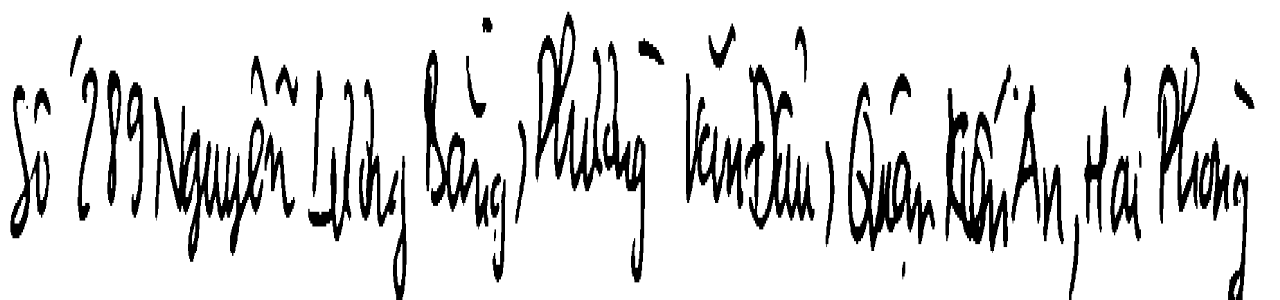 Số 289 Nguyễn Lương Bằng, Phường Văn Đẩu, Quận Kiến An, Hải Phòng